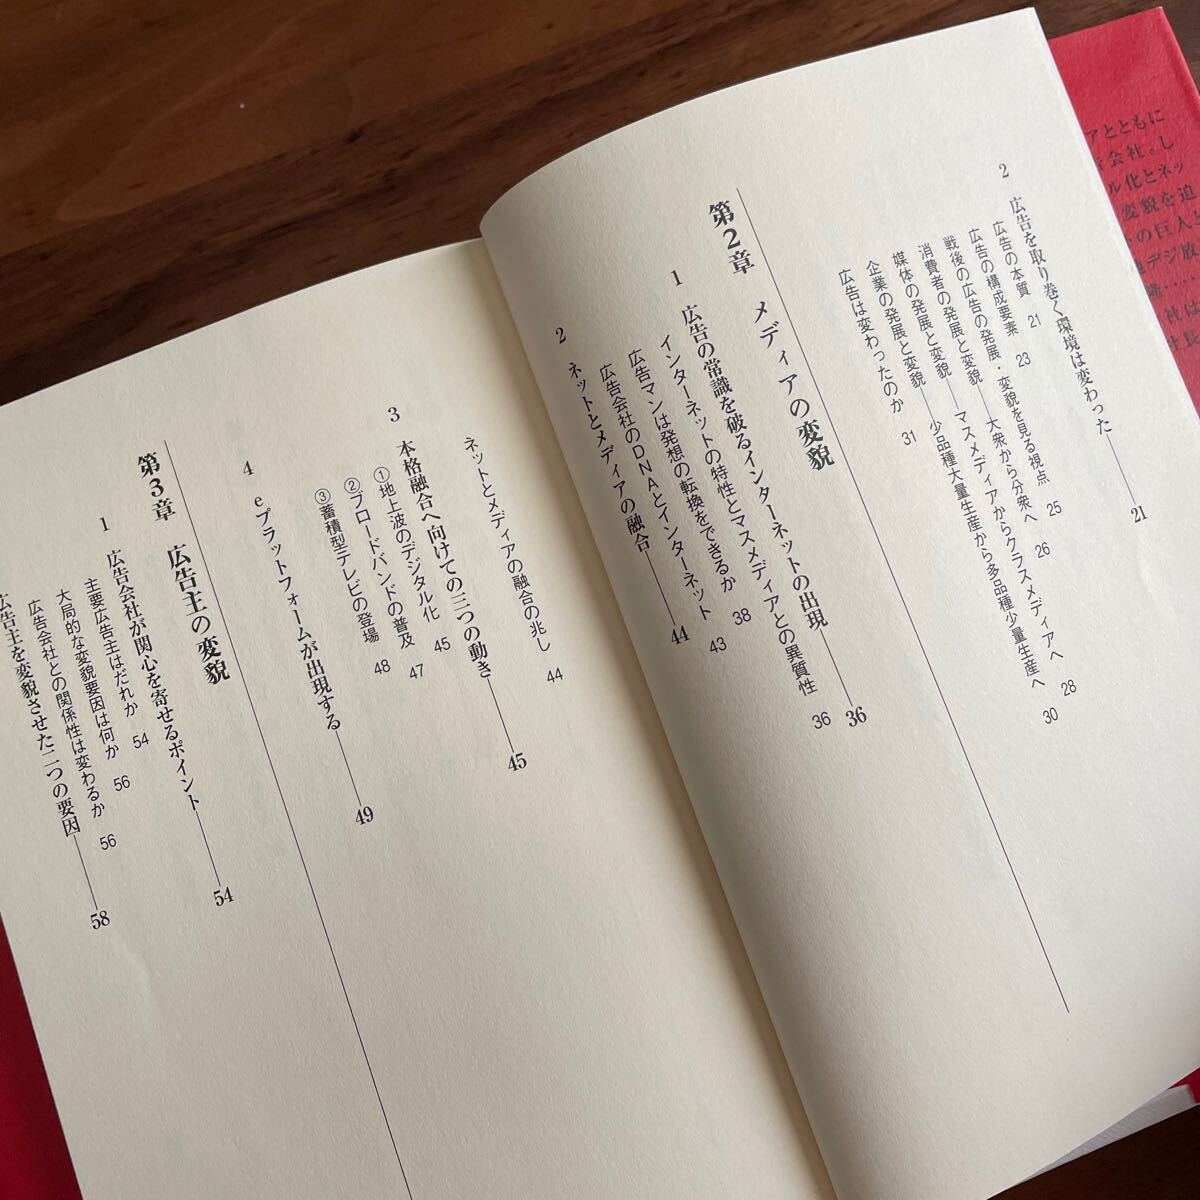 2 広告を取り巻く環境は変わった――21
広告の本質 21
広告の構成要素 23
戦後の広告の発展・変貌を見る視点 25
消費者の発展と変貌――大衆から分衆へ 26
媒体の発展と変貌――マスメディアからクラスメディアへ 28
企業の発展と変貌――少品種大量生産から多品種少量生産へ 30
広告は変わったのか 31
第2章 メディアの変貌
1 広告の常識を破るインターネットの出現――36
インターネットの特性とマスメディアとの異質性 36
広告マンは発想の転換をできるか 38
広告会社のDNAとインターネット 43
2 ネットとメディアの融合――44
ネットとメディアの融合の兆し 44
3 本格融合へ向けての三つの動き――45
①地上波のデジタル化 45
②ブロードバンドの普及 47
③蓄積型テレビの登場 48
4 eプラットフォームが出現する――49
第3章 広告主の変貌
1 広告会社が関心を寄せるポイント――54
主要広告主はだれか 54
大局的な変貌要因は何か 56
広告会社との関係性は変わるか 56
広告主を変貌させた二つの要因――58
アとともに
会社。し
ル化とネッ
変貌を追
の巨人、
デジ放
隆……
社は
社長